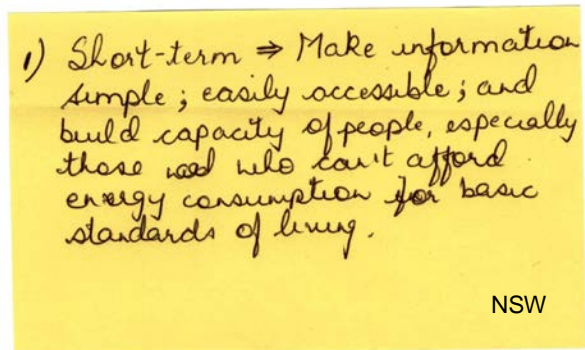 1) Short-term ⇒ Make information
simple; easily accessible; and
build capacity of people, especially
those who can't afford
energy consumption for basic
standards of living.
NSW